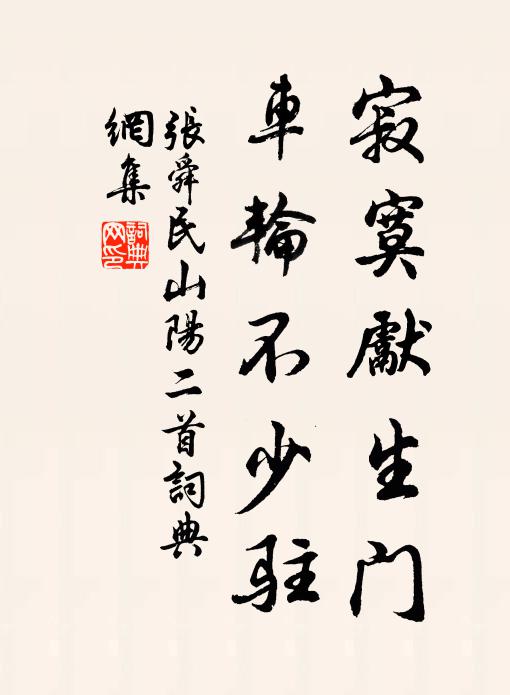 寂寞獻生門
車輪不少駐
張舜民山陽二首詞典
網集
詞典
网印